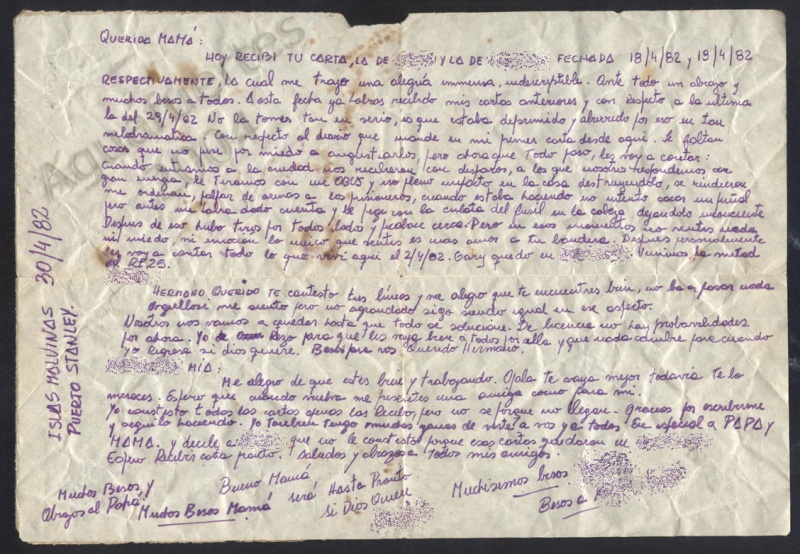 QUERIDA MAMÁ:
HOY RECIBI TU CARTA, LA DE Y LA DE FECHADA 18/4/82 y 19/4/82
RESPECTIVAMENTE, la cual me trajo una alegria inmensa, indescriptible. Ante todo un abrazo y
muchos besos a todos. A esta fecha ya habras recibido mis cartas anteriores y con respecto a la ultima
la del 29/4/82 No la tomes tan en serio, es que estaba deprimido y aburrido por eso en tan
melodramatica. Con respecto al diario que mande en mi primer carta desde aqui. Le faltan
cosas que no puse por miedo a angustiarlos, pero ahora que todo paso, les voy a contar:
Cuando entramos a la ciudad nos recibieron con disparos, a los que nosotros respondimos con
gran, le Tiramos con un OBUS y eso pleno impacto en la casa destruyendola, se rindieron
me ordenan, palpar de armas a los prisioneros, cuando estaba haciendo uno intento sacar un puñal
pero antes me habia dado cuenta y le pegue con la culata del fusil en la cabeza dejandolo inconciente
Despues de eso hubo tiros por todos lados y pedian cerca. Pero en esos momentos no sentes nada
ni miedo, ni emocion lo unico que sentes es mas amor a tu bandera. Despues personalmente
les voy a contar todo lo que vivi aqui el 2/4/82. Gary quedo en Vinimos la mitad
del RI25.
HERMANO QUERIDO TE contesto tus lineas y me alegro que te encuentres bien, no va a pasar nada
orgulloso me siento pero no agrandado sigo siendo igual en ese aspecto.
Nosotros nos vamos a quedar hasta que todo se solucione. De licencia no hay probabilidades
por ahora. Yo rezo para que les vaya bien a todos por alla y que nada cambie para cuando
yo regrese si dios quiere. Besos para vos Querido Hermano.
MIA:
Me alegro de que estes bien y trabajando. Ojala te vaya mejor todavia te lo
mereces. Espero que cuando vuelva me presentes una amiga como para mi.
Yo contesto todas las cartas apenas las Recibo, pero no se porque no llegan. Gracias por escribirme
y seguilo haciendo. Yo tambien tengo muchas ganas de verte a vos y a todos. En especial a PAPA y
MAMA. y decile a que no le conteste porque esas cartas quedaron en
Espero Recibir carta pronto. Saludos y abrazos a Todos mis amigos.
Bueno Mamá
será Hasta Pronto
si Dios Quiere
Muchos Besos y
Abrazos al Papá.
Muchos Besos Mamá
Muchisimos besos
Besos a
ISLAS MALVINAS 30/4/82
PUERTO STANLEY.